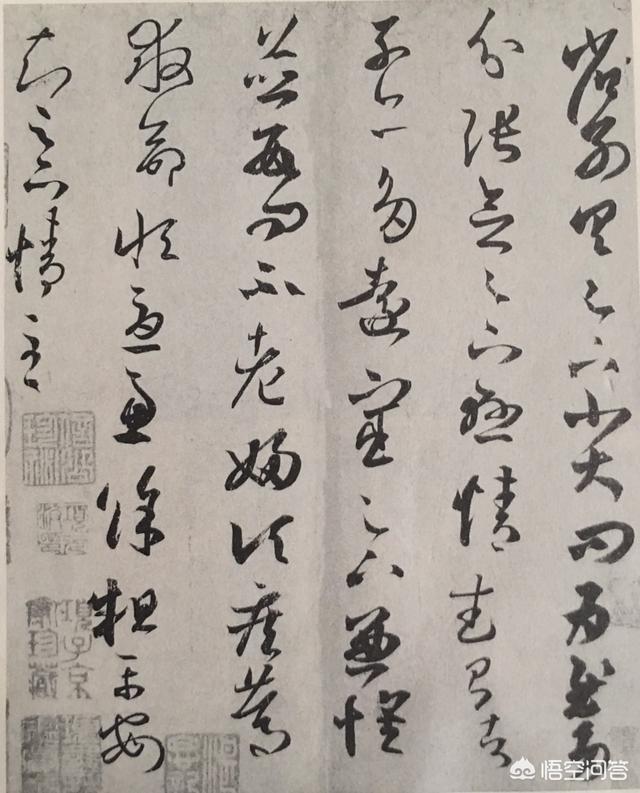 省别具足下小大問為慰多
分張念足下懸情武昌諸
子亦多遠宦足下兼懷
並數問不老婦頃疾篤
救命恒憂慮餘粗平安
知足下情至
項子京家珍藏
悟空问答